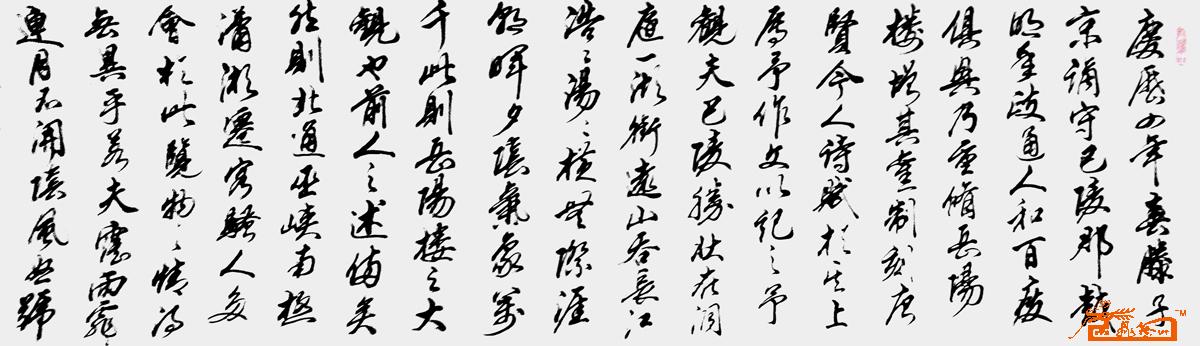 慶曆四年春滕子
京謫守巴陵郡越
明年政通人和百廢
俱興乃重脩岳陽
樓增其舊制刻唐
賢今人詩賦於其上
屬予作文以記之予
觀夫巴陵勝狀在洞
庭一湖銜遠山吞長江
浩〻湯〻橫無際涯
朝暉夕陰氣象萬
千此則岳陽樓之大
觀也前人之述備矣
然則北通巫峽南極
瀟湘遷客騷人多
會於此覽物之情得
無異乎若夫霪雨霏〻
連月不開陰風怒號